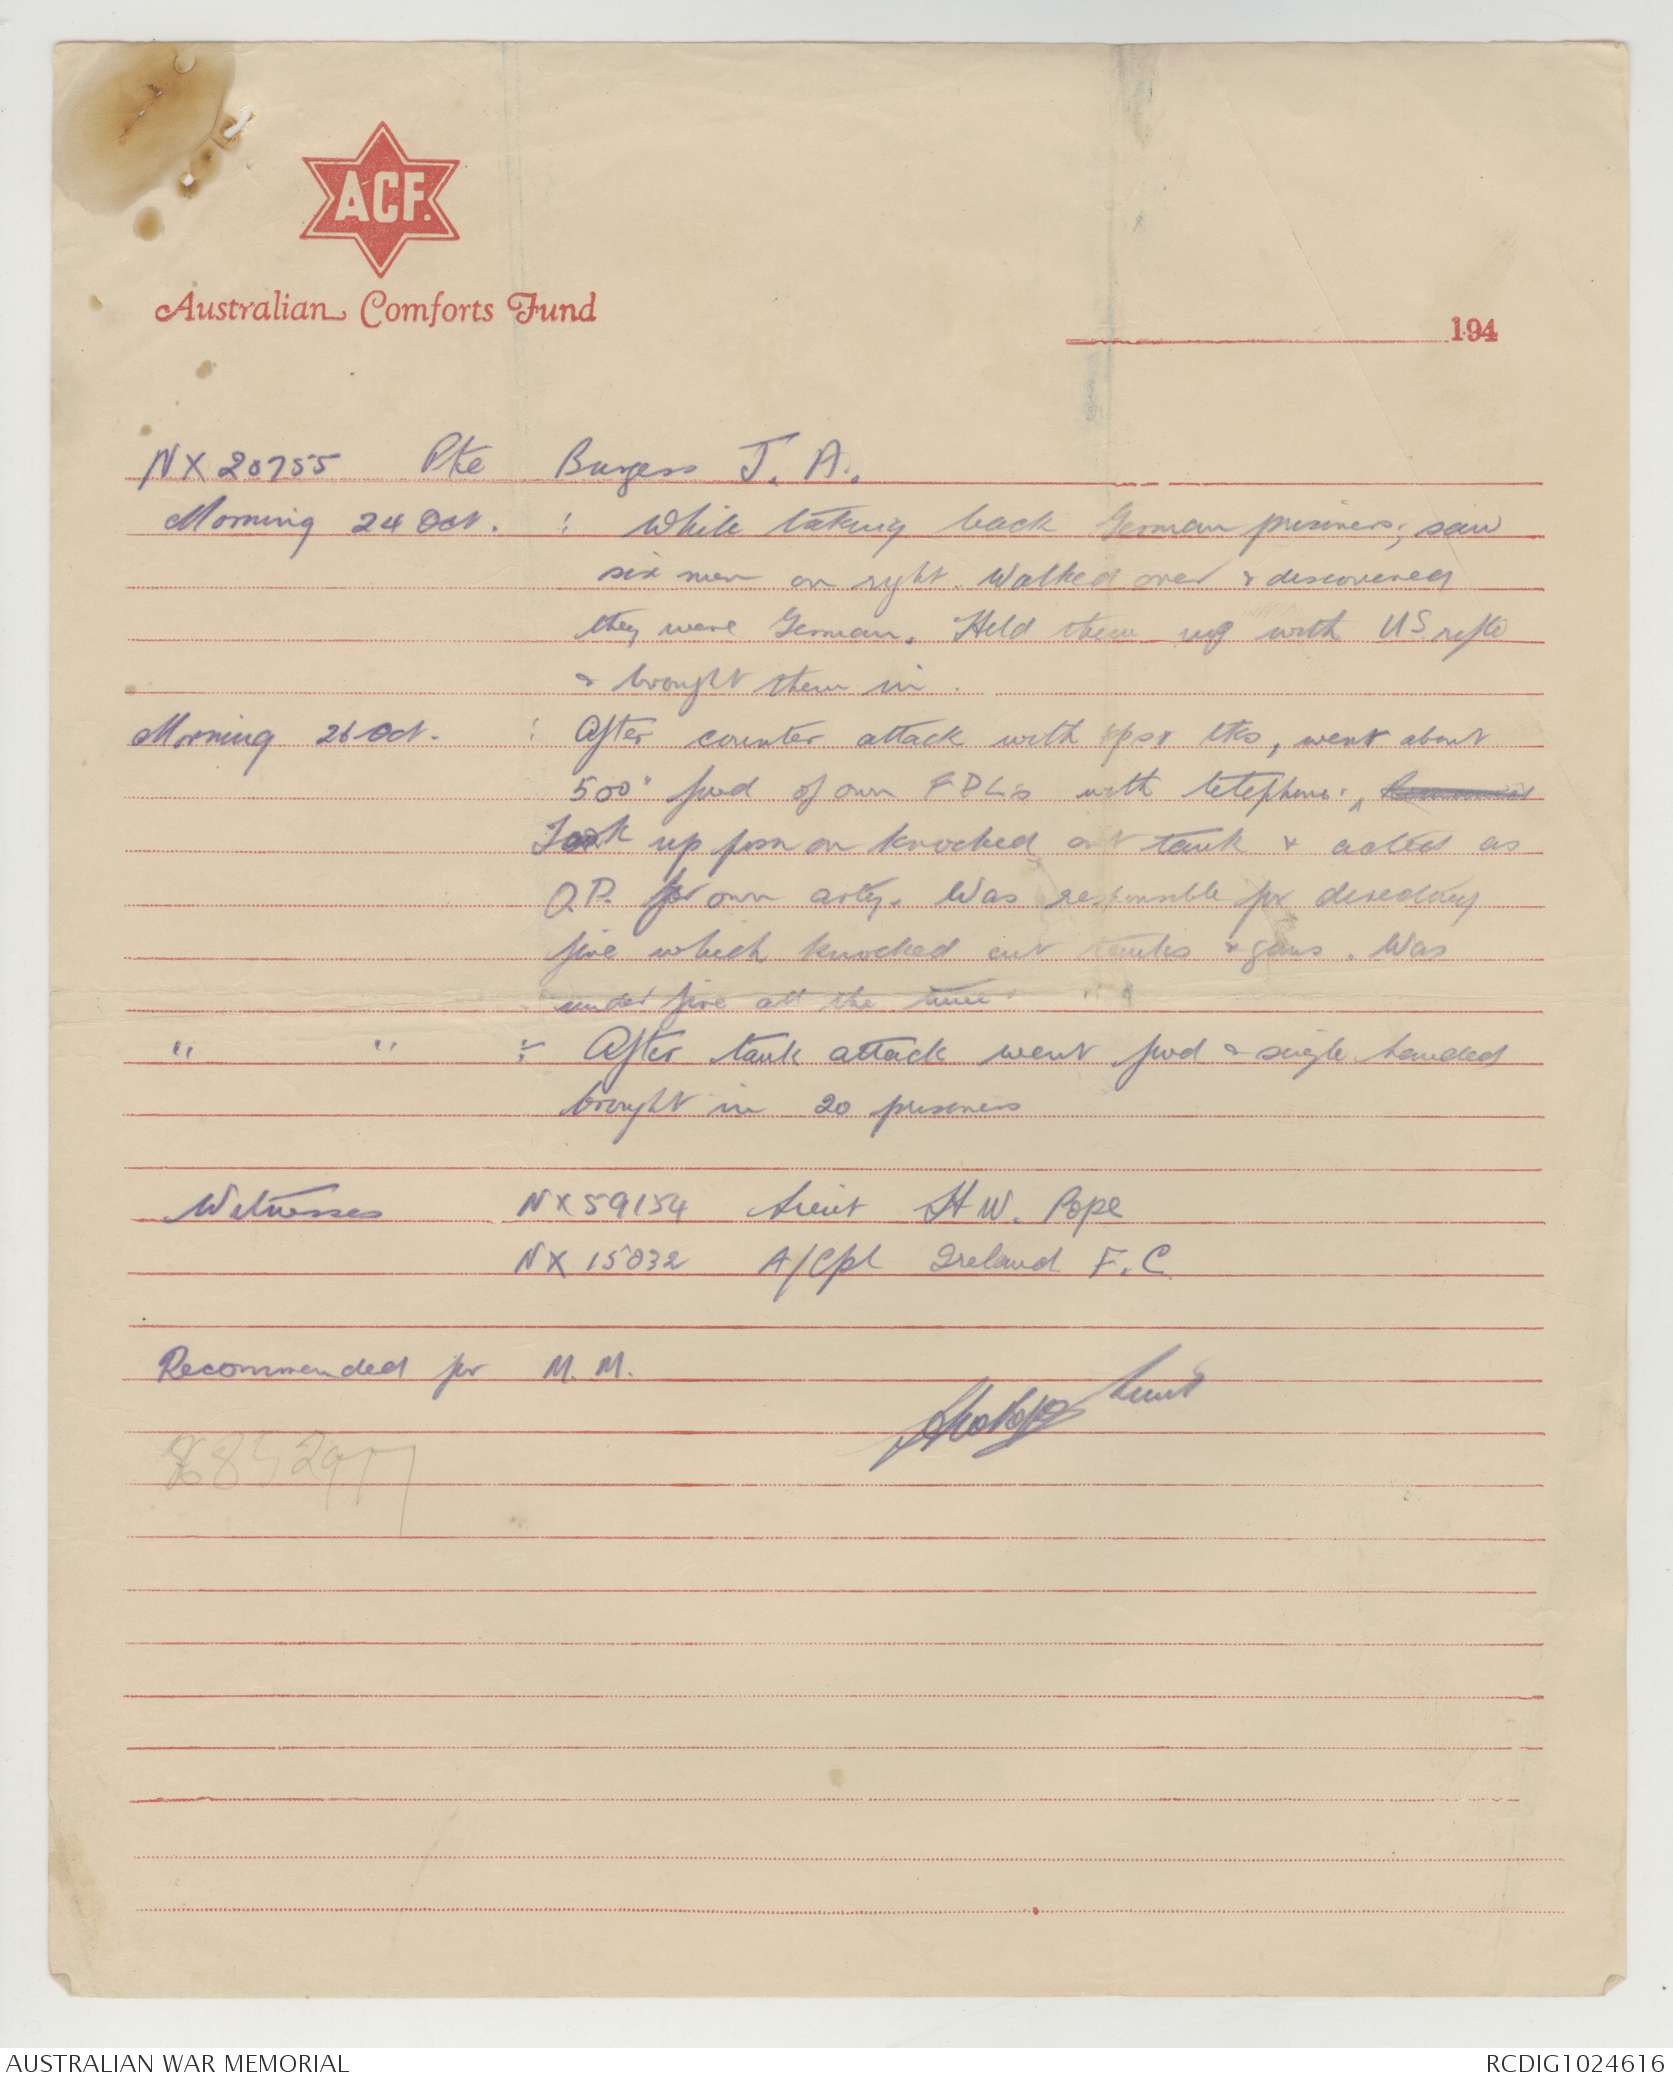 ACF.
Australian Comforts Fund
194
NX 20755 Pte Burgess J. A.
Morning 24 Oct. : While taking back German prisoners, saw
six men on right. Walked over & discovered
they were German. Held them up with US rifle
& brought them in.
Morning 26 Oct. : After counter attack with tps & tks, went about
500" fwd of own FDLs with telephone,
Took up posn on knocked out tank & acted as
O.P. for own arty. Was responsible for directing
fire which knocked out tanks & guns. Was
under fire all the time.
" " : After tank attack went fwd & single handed
brought in 20 prisoners
Witnesses NX59154 Lieut H W. Pope
NX 15032 A/Cpl Ireland F. C.
Recommended for M. M.
HWPope Lieut
AUSTRALIAN WAR MEMORIAL
RCDIG1024616